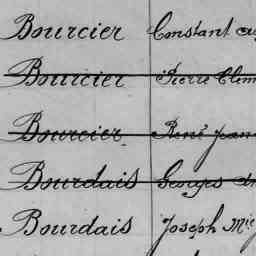 Bourcier Constant
Bourcier Pierre
Bourcier René Jean
Bourdais Georges
Bourdais Joseph